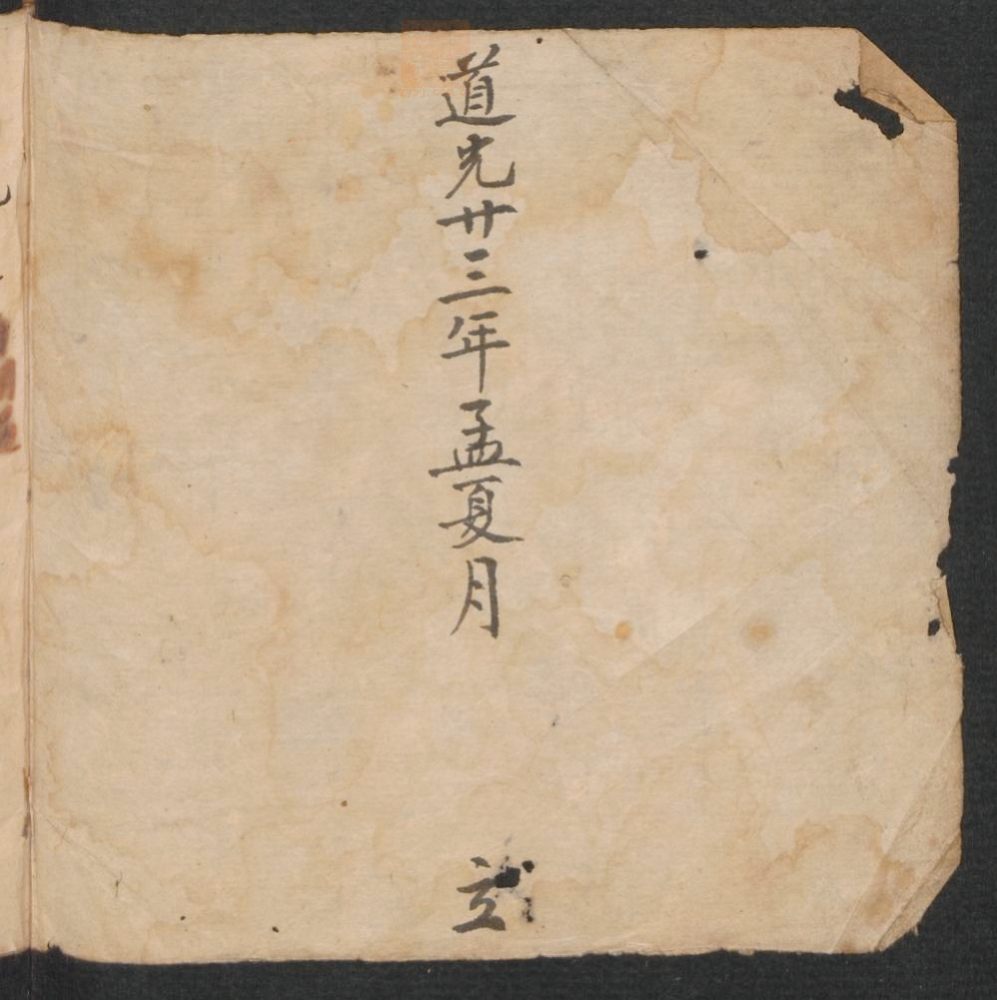 道光廿三年孟夏月 立